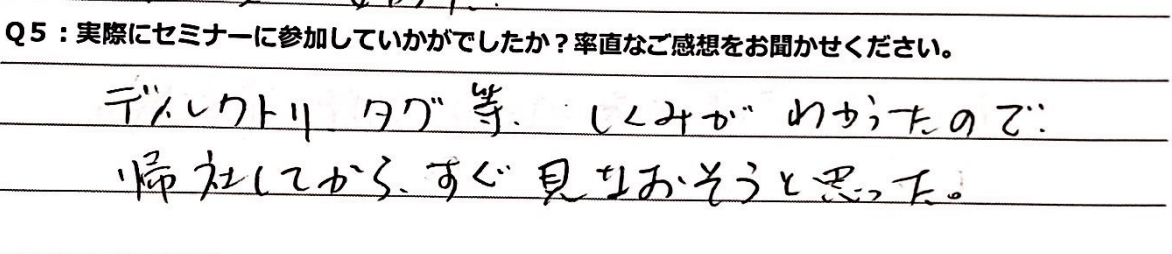 Q5：実際にセミナーに参加していかがでしたか？率直なご感想をお聞かせください。
ディレクトリ、タグ等、しくみがわかったので、
帰社してから、すぐ見なおそうと思った。